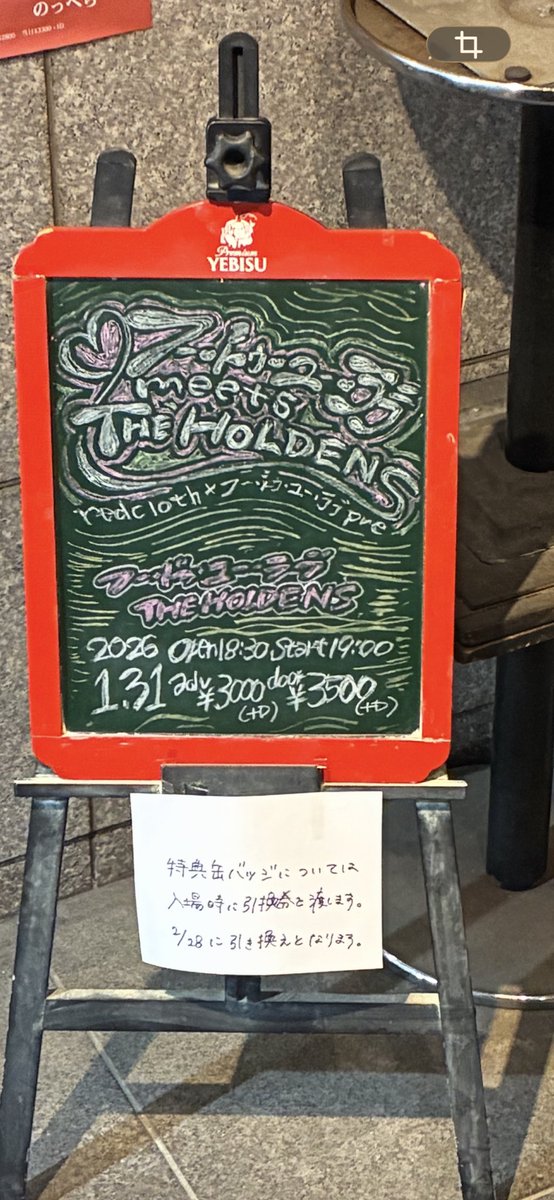 のっぺら
Premium
YEBISU
フー・ドゥ・ユー・ラブ
meets
THE HOLDENS
redcloth×フー・ドゥ・ユー・ラブ pre
フー・ドゥ・ユー・ラブ
THE HOLDENS
2026 Open18:30.Start19:00
1.31 adv ¥3000(+D) door ¥3500(+D)
特典缶バッジについては
入場時に引換券を渡します。
2/28に引き換えとなります。